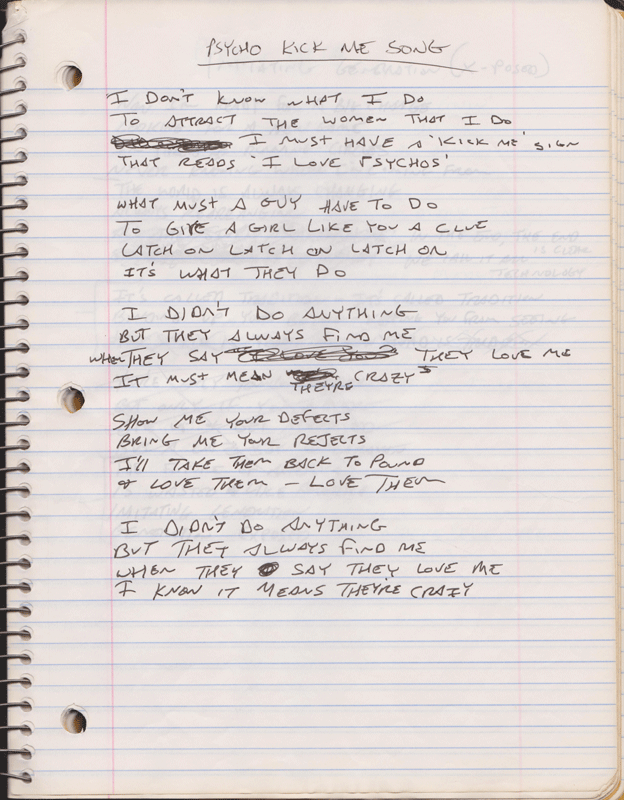 PSYCHO KICK ME SONG
I DON'T KNOW WHAT I DO
TO ATTRACT THE WOMEN THAT I DO
I MUST HAVE A 'KICK ME' SIGN
THAT READS 'I LOVE PSYCHOS'
WHAT MUST A GUY HAVE TO DO
TO GIVE A GIRL LIKE YOU A CLUE
LATCH ON LATCH ON LATCH ON
IT'S WHAT THEY DO
I DIDN'T DO ANYTHING
BUT THEY ALWAYS FIND ME
WHEN THEY SAY THEY LOVE ME
IT MUST MEAN THEY'RE CRAZY
SHOW ME YOUR DEFECTS
BRING ME YOUR REJECTS
I'LL TAKE THEM BACK TO POUND
& LOVE THEM – LOVE THEM
I DIDN'T DO ANYTHING
BUT THEY ALWAYS FIND ME
WHEN THEY SAY THEY LOVE ME
I KNOW IT MEANS THEY'RE CRAZY